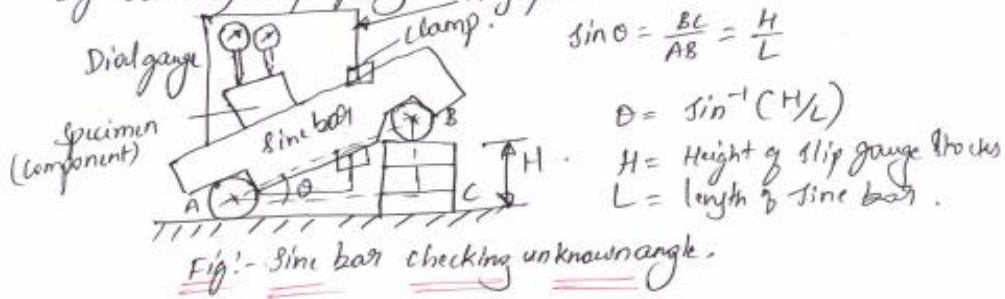 Dial gauge
clamp.
Specimen
(Component)
Sine bar
A
B
C
θ
H
sin θ = BC/AB = H/L
θ = sin⁻¹ (H/L)
H = Height of slip gauge stocks
L = length of sine bar.
Fig:- Sine bar checking unknown angle.